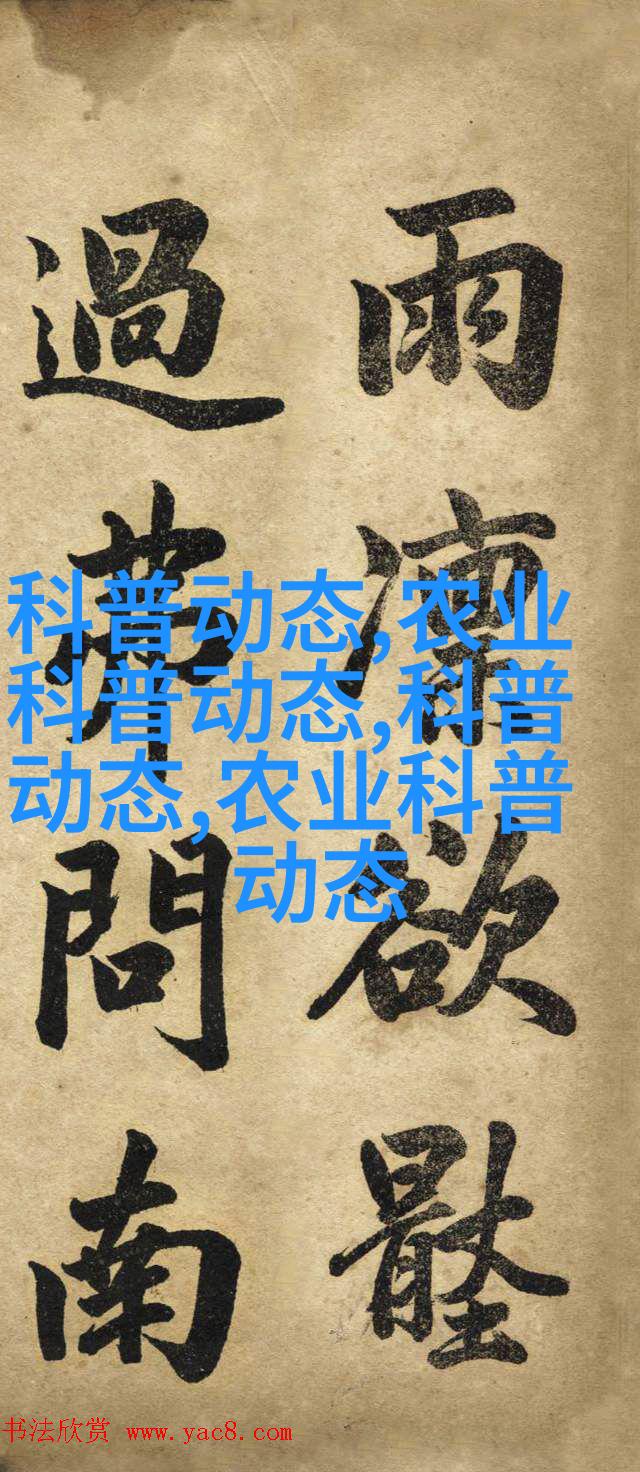 雨 欲
過 問南
科普动态,农业
科普动态,科普
动态,农业科普
动态
书法欣赏 www.yac8.com